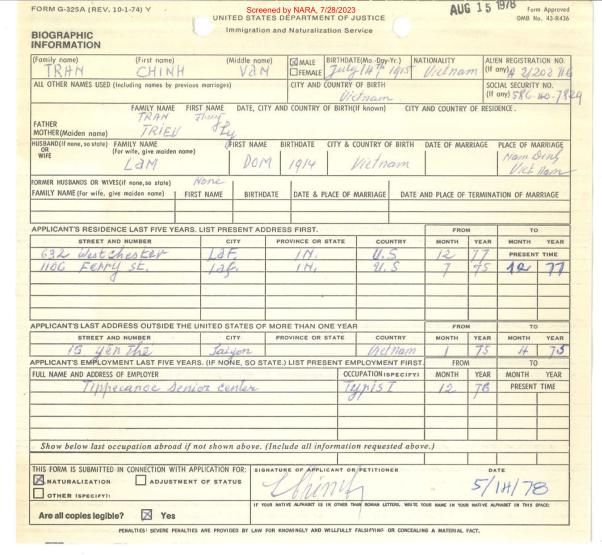 FORM G-325A (REV. 10-1-74) Y
Screened by NARA, 7/28/2023
AUG 15 1978
Form Approved
OMB No. 43-R436
UNITED STATES DEPARTMENT OF JUSTICE
Immigration and Naturalization Service
BIOGRAPHIC
INFORMATION
(Family name) (First name) (Middle name) MALE FEMALE BIRTHDATE(Mo.-Day-Yr.) NATIONALITY ALIEN REGISTRATION NO. (If any)
TRAN CHINH VAN July 14th 1915 Vietnam
ALL OTHER NAMES USED (Including names by previous marriages) CITY AND COUNTRY OF BIRTH SOCIAL SECURITY NO. (If any)
Vietnam
FAMILY NAME FIRST NAME DATE, CITY AND COUNTRY OF BIRTH(If known) CITY AND COUNTRY OF RESIDENCE.
FATHER TRAN
MOTHER(Maiden name) TRIEU
HUSBAND(If none, so state) OR WIFE FAMILY NAME (For wife, give maiden name) FIRST NAME BIRTHDATE CITY & COUNTRY OF BIRTH DATE OF MARRIAGE PLACE OF MARRIAGE
LAM DOM 1914 Vietnam Nam Dinh
Viet Nam
FORMER HUSBANDS OR WIVES(if none, so state) None
FAMILY NAME (For wife, give maiden name) FIRST NAME BIRTHDATE DATE & PLACE OF MARRIAGE DATE AND PLACE OF TERMINATION OF MARRIAGE
APPLICANT'S RESIDENCE LAST FIVE YEARS. LIST PRESENT ADDRESS FIRST. FROM TO
STREET AND NUMBER CITY PROVINCE OR STATE COUNTRY MONTH YEAR MONTH YEAR
632 Westchester Laf. IN. U.S 12 77 PRESENT TIME
1106 Ferry st. Laf. IN. U.S 7 75 12 77
APPLICANT'S LAST ADDRESS OUTSIDE THE UNITED STATES OF MORE THAN ONE YEAR FROM TO
STREET AND NUMBER CITY PROVINCE OR STATE COUNTRY MONTH YEAR MONTH YEAR
15 Yen The Saigon Vietnam 1 75 4 75
APPLICANT'S EMPLOYMENT LAST FIVE YEARS. (IF NONE, SO STATE.) LIST PRESENT EMPLOYMENT FIRST. FROM TO
FULL NAME AND ADDRESS OF EMPLOYER OCCUPATION (SPECIFY) MONTH YEAR MONTH YEAR
Tippecanoe Senior center Typist 12 76 PRESENT TIME
Show below last occupation abroad if not shown above. (Include all information requested above.)
THIS FORM IS SUBMITTED IN CONNECTION WITH APPLICATION FOR: SIGNATURE OF APPLICANT OR PETITIONER DATE
NATURALIZATION ADJUSTMENT OF STATUS
OTHER (SPECIFY): Chinh 5/14/78
IF YOUR NATIVE ALPHABET IS IN OTHER THAN ROMAN LETTERS, WRITE YOUR NAME IN YOUR NATIVE ALPHABET IN THIS SPACE:
Are all copies legible? Yes
PENALTIES: SEVERE PENALTIES ARE PROVIDED BY LAW FOR KNOWINGLY AND WILLFULLY FALSIFYING OR CONCEALING A MATERIAL FACT.